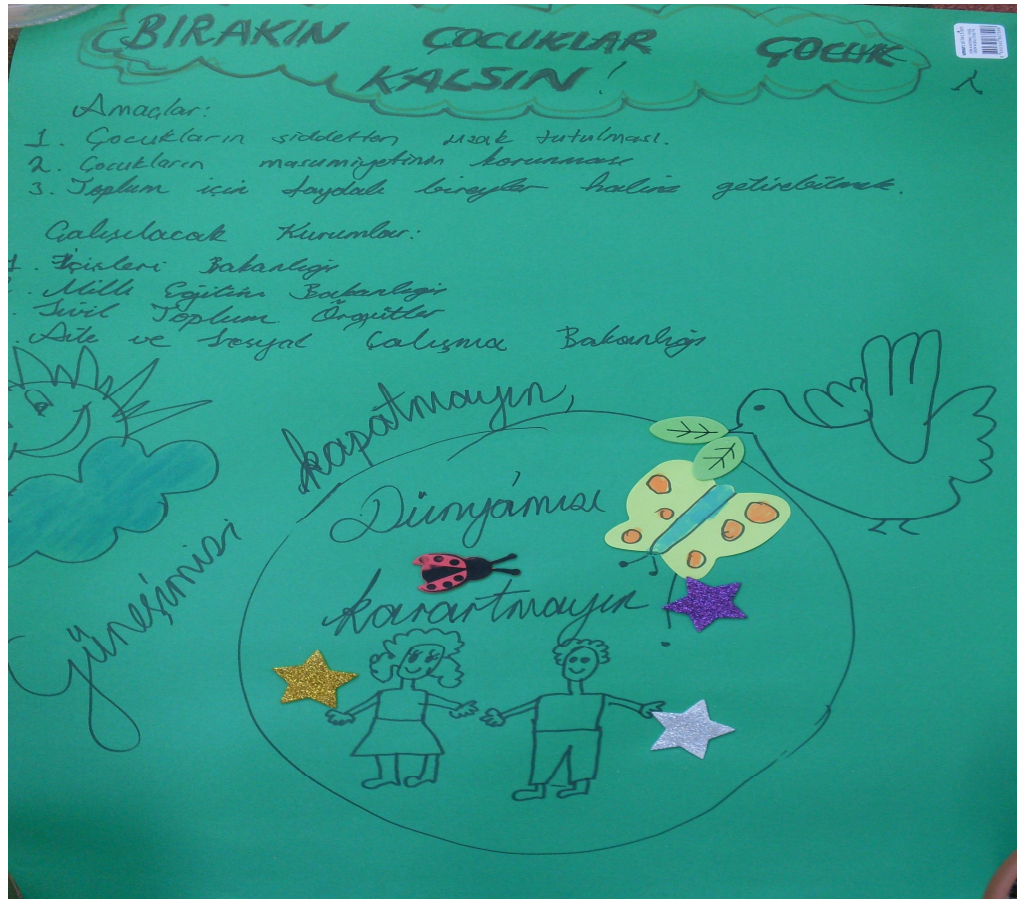 BIRAKIN ÇOCUKLAR ÇOCUK
KALSIN!
Amaçlar:
1. Çocukların şiddetten uzak tutulması.
2. Çocukların masumiyetinin korunması
3. Toplum için faydalı bireyler haline getirebilmek.
Çalışılacak Kurumlar:
1. İçişleri Bakanlığı
. Milli Eğitim Bakanlığı
. Sivil Toplum Örgütler
. Aile ve Sosyal Çalışma Bakanlığı
Güneşimizi
kapatmayın,
Dünyamızı
karartmayın!